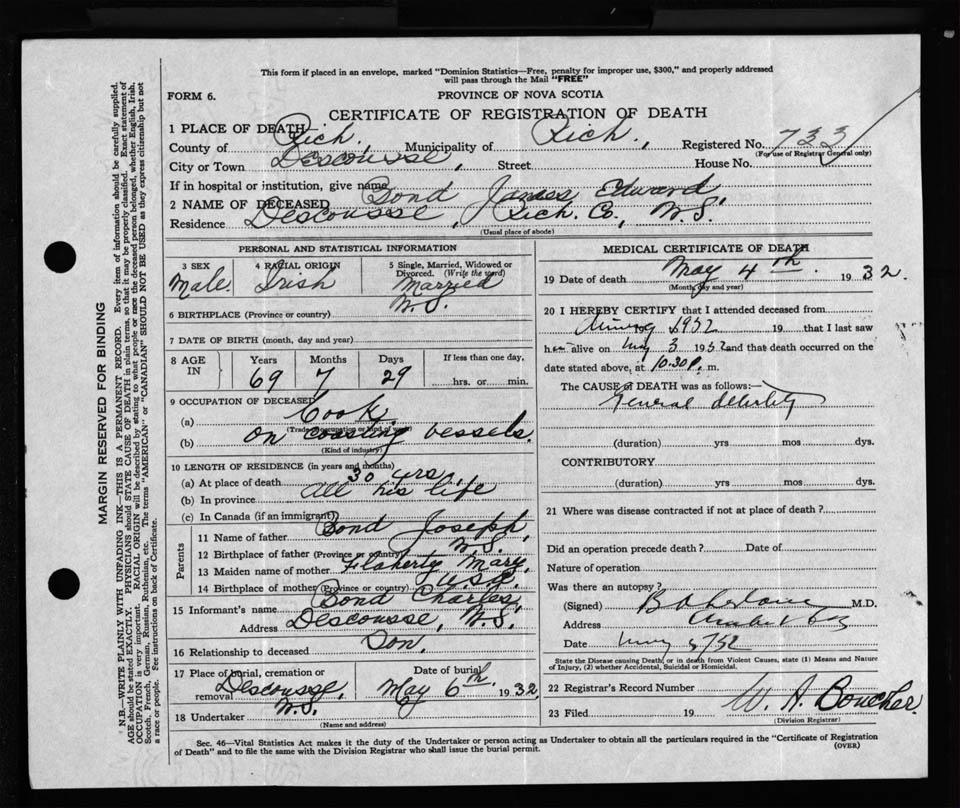 This form if placed in an envelope, marked "Dominion Statistics—Free, penalty for improper use, $300," and properly addressed
will pass through the Mail "FREE"
FORM 6.
PROVINCE OF NOVA SCOTIA
CERTIFICATE OF REGISTRATION OF DEATH
1 PLACE OF DEATH
County of Rich. , Municipality of Rich. , Registered No. 733
(For use of Registrar General only)
City or Town Descousse , Street House No.
If in hospital or institution, give name
2 NAME OF DECEASED Bond James Edward
Residence Descousse , Rich. Co., N.S.
(Usual place of abode)
PERSONAL AND STATISTICAL INFORMATION
3 SEX
Male.
4 RACIAL ORIGIN
Irish
5 Single, Married, Widowed or
Divorced. (Write the word)
Married
6 BIRTHPLACE (Province or country) N.S.
7 DATE OF BIRTH (month, day and year)
8 AGE
IN
Years
69
Months
7
Days
29
If less than one day,
hrs. or min.
9 OCCUPATION OF DECEASED
(a) Cook
(Trade, occupation or kind of work)
(b) on coasting vessels.
(Kind of industry)
10 LENGTH OF RESIDENCE (in years and months)
(a) At place of death 30 yrs,
(b) In province all his life
(c) In Canada (if an immigrant)
Parents
11 Name of father Bond Joseph,
12 Birthplace of father (Province or country) N.S.
13 Maiden name of mother Flaherty Mary,
14 Birthplace of mother (Province or country) U.S.A.
15 Informant's name Bond Charles,
Address Descousse, N.S.
16 Relationship to deceased Son.
17 Place of burial, cremation or
removal Descousse, N.S.
Date of burial
May 6th 1932
18 Undertaker
(Name and address)
MEDICAL CERTIFICATE OF DEATH
19 Date of death May 4th. 1932.
(Month, day and year)
20 I HEREBY CERTIFY that I attended deceased from
19 that I last saw
him alive on May 3 1932 and that death occurred on the
date stated above, at 10.30 P. m.
The CAUSE of DEATH was as follows:—
General debility
(duration) yrs mos dys.
CONTRIBUTORY
(duration) yrs mos dys.
21 Where was disease contracted if not at place of death ?
Did an operation precede death ? Date of
Nature of operation
Was there an autopsy?
(Signed) M.D.
Address
Date
State the Disease causing Death, or in death from Violent Causes, state (1) Means and Nature
of Injury, (2) whether Accidental, Suicidal or Homicidal.
22 Registrar's Record Number
23 Filed 19 W. A. Boucher.
(Division Registrar)
Sec. 46—Vital Statistics Act makes it the duty of the Undertaker or person acting as Undertaker to obtain all the particulars required in the "Certificate of Registration
of Death" and to file the same with the Division Registrar who shall issue the burial permit.
(OVER)
MARGIN RESERVED FOR BINDING
N.B.—WRITE PLAINLY WITH UNFADING INK—THIS IS A PERMANENT RECORD. Every item of information should be carefully supplied.
AGE should be stated EXACTLY. PHYSICIANS should STATE CAUSE OF DEATH in plain terms, so that it may be properly classified. Exact statement of
OCCUPATION is very important. RACIAL ORIGIN will be described by stating to what people or race the deceased person belonged, whether English, Irish,
Scotch, French, German, Russian, Ruthenian, etc. The terms "AMERICAN" or "CANADIAN" SHOULD NOT BE USED as they express citizenship but not
a race or people. See instructions on back of Certificate.